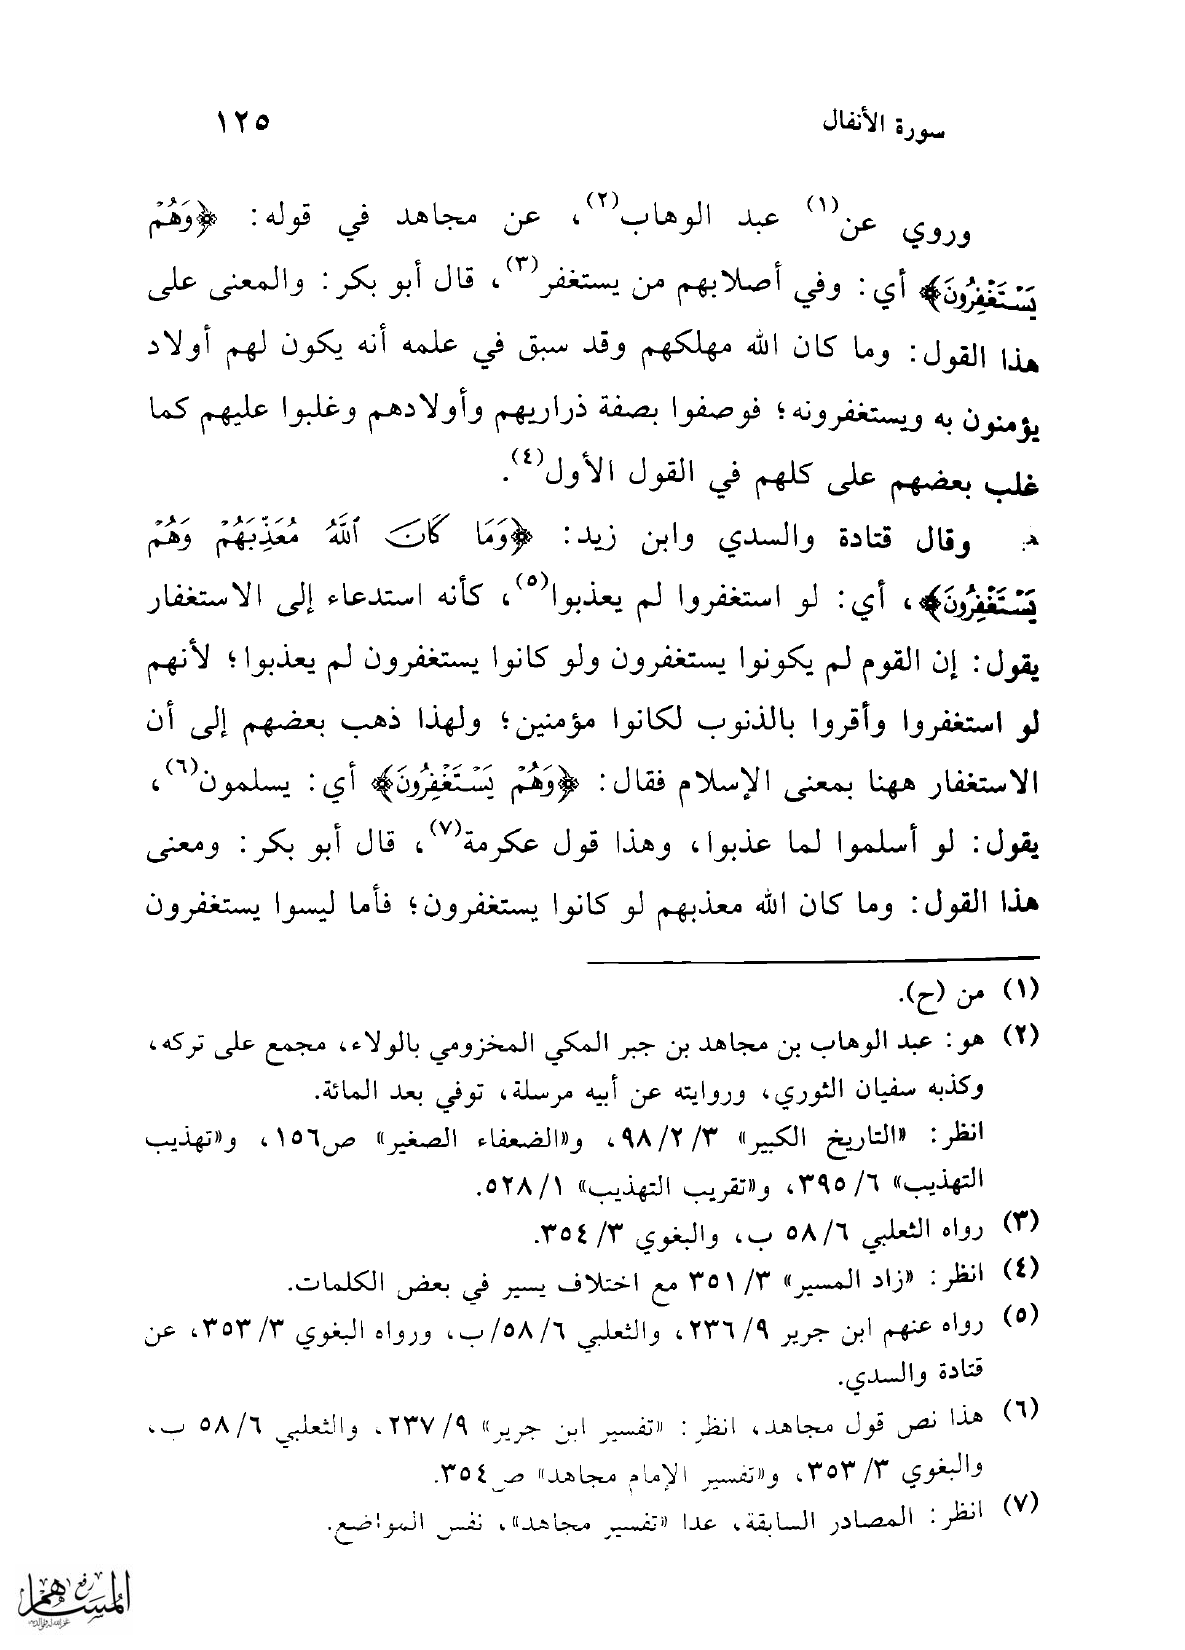 سورة الأنفال ١٢٥
وروي عن(١) عبد الوهاب(٢)، عن مجاهد في قوله: ﴿وَهُمْ
يَسْتَغْفِرُونَ﴾ أي: وفي أصلابهم من يستغفر(٣)، قال أبو بكر: والمعنى على
هذا القول: وما كان الله مهلكهم وقد سبق في علمه أنه يكون لهم أولاد
يؤمنون به ويستغفرونه؛ فوصفوا بصفة ذراريهم وأولادهم وغلبوا عليهم كما
غلب بعضهم على كلهم في القول الأول(٤).
وقال قتادة والسدي وابن زيد: ﴿وَمَا كَانَ ٱللَّهُ مُعَذِّبَهُمْ وَهُمْ
يَسْتَغْفِرُونَ﴾، أي: لو استغفروا لم يعذبوا(٥)، كأنه استدعاء إلى الاستغفار
يقول: إن القوم لم يكونوا يستغفرون ولو كانوا يستغفرون لم يعذبوا؛ لأنهم
لو استغفروا وأقروا بالذنوب لكانوا مؤمنين؛ ولهذا ذهب بعضهم إلى أن
الاستغفار ههنا بمعنى الإسلام فقال: ﴿وَهُمْ يَسْتَغْفِرُونَ﴾ أي: يسلمون(٦)،
يقول: لو أسلموا لما عذبوا، وهذا قول عكرمة(٧)، قال أبو بكر: ومعنى
هذا القول: وما كان الله معذبهم لو كانوا يستغفرون؛ فأما ليسوا يستغفرون
(١) من (ح).
(٢) هو: عبد الوهاب بن مجاهد بن جبر المكي المخزومي بالولاء، مجمع على تركه،
وكذبه سفيان الثوري، وروايته عن أبيه مرسلة، توفي بعد المائة.
انظر: «التاريخ الكبير» ٣/ ٢/ ٩٨، و«الضعفاء الصغير» ص١٥٦، و«تهذيب
التهذيب» ٦/ ٣٩٥، و«تقريب التهذيب» ١/ ٥٢٨.
(٣) رواه الثعلبي ٦/ ٥٨ ب، والبغوي ٣/ ٣٥٤.
(٤) انظر: «زاد المسير» ٣/ ٣٥١ مع اختلاف يسير في بعض الكلمات.
(٥) رواه عنهم ابن جرير ٩/ ٢٣٦، والثعلبي ٦/ ٥٨/ب، ورواه البغوي ٣/ ٣٥٣، عن
قتادة والسدي.
(٦) هذا نص قول مجاهد، انظر: «تفسير ابن جرير» ٩/ ٢٣٧، والثعلبي ٦/ ٥٨ ب،
والبغوي ٣/ ٣٥٣، و«تفسير الإمام مجاهد» ص٣٥٤.
(٧) انظر: المصادر السابقة، عدا «تفسير مجاهد»، نفس المواضع.